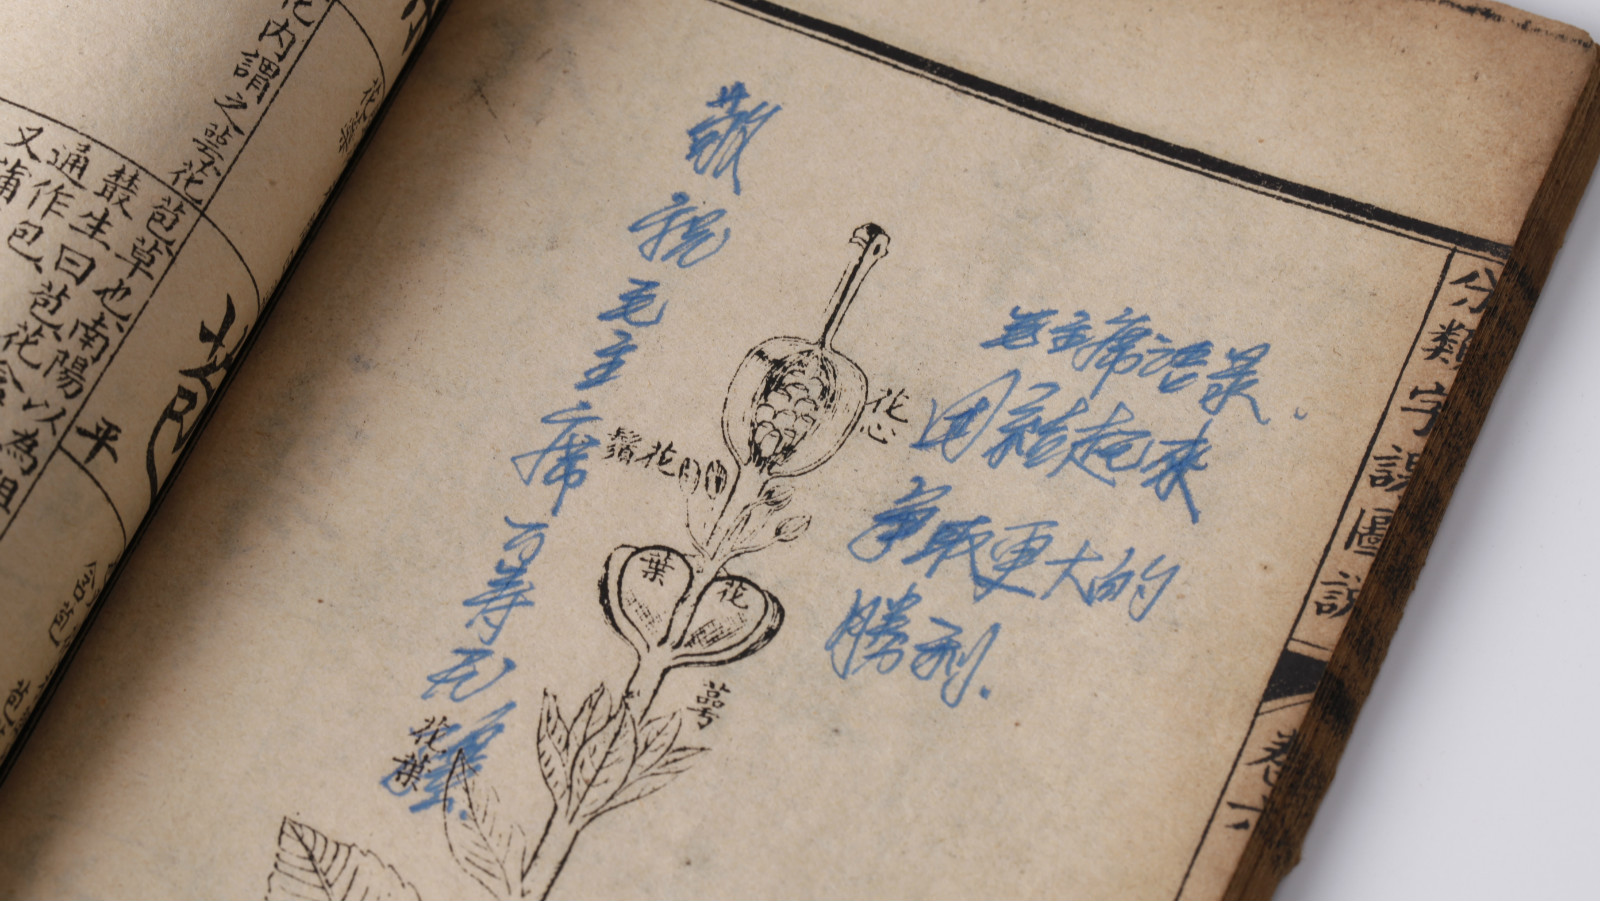 分類字課圖說
卷六
毛主席语录.
团结起来
争取更大的
勝利.
敬祝毛主席万寿无疆.
花心
鬚花
葉
花
萼
花葉
苞
平
苞草也南陽以為
叢生曰苞
通作包
又蒲
花內謂之萼花